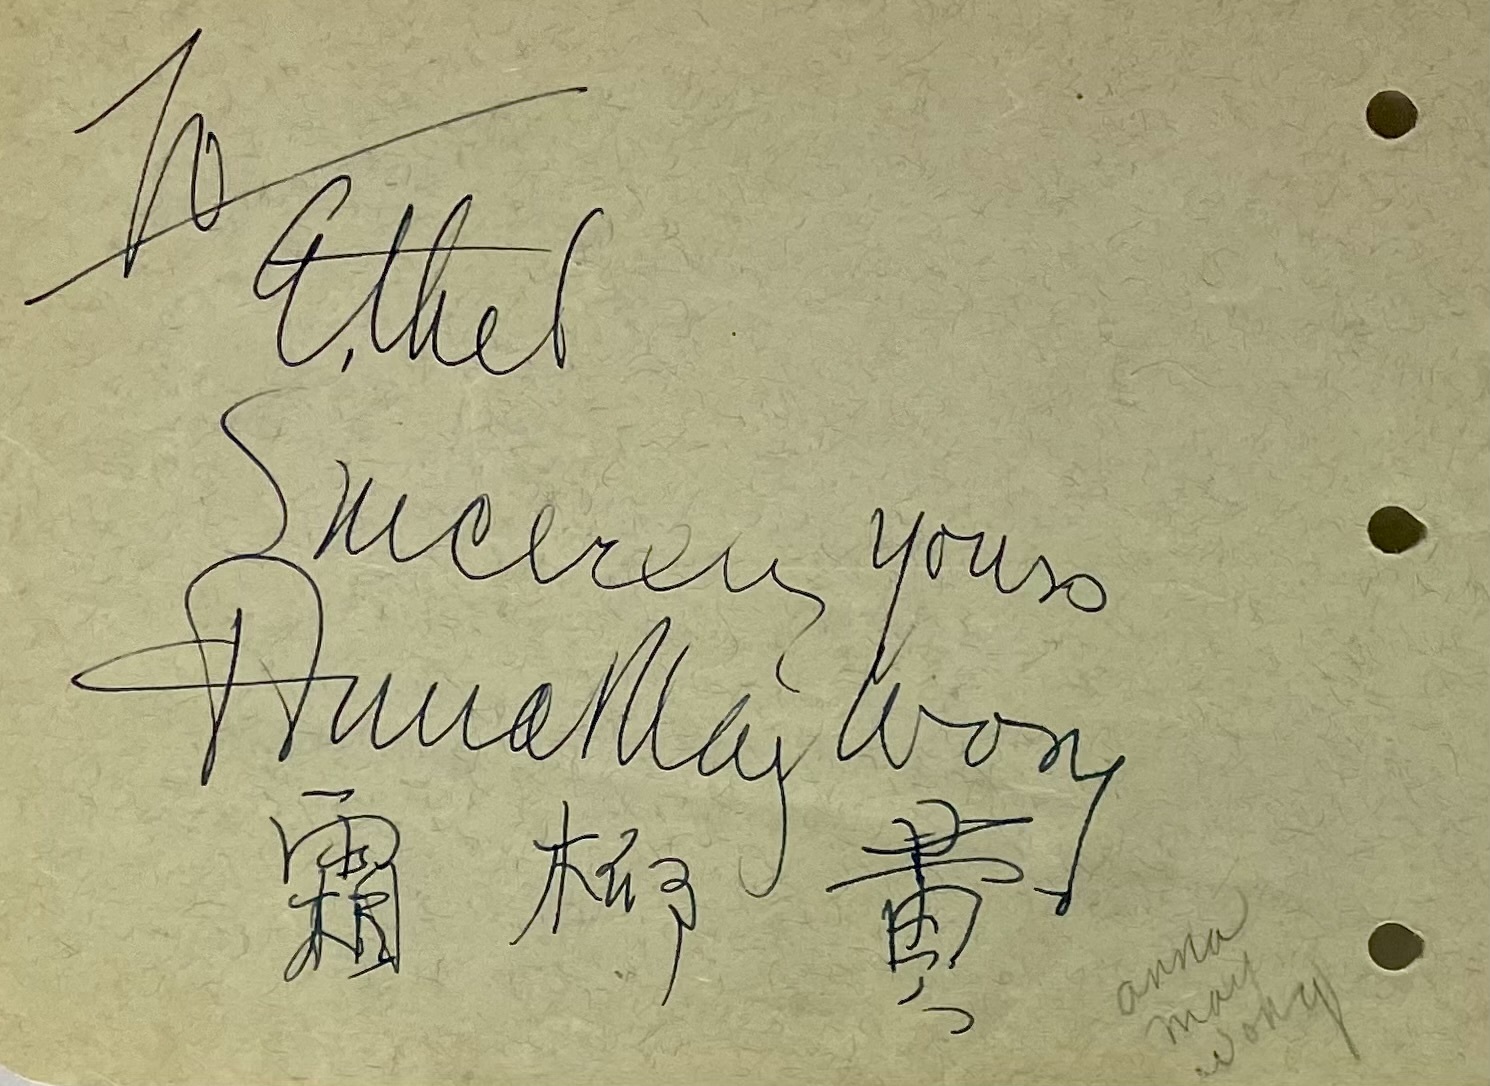 To
Ethel
Sincerely yours
Anna May Wong
霜 柳 黄
anna
may
wong